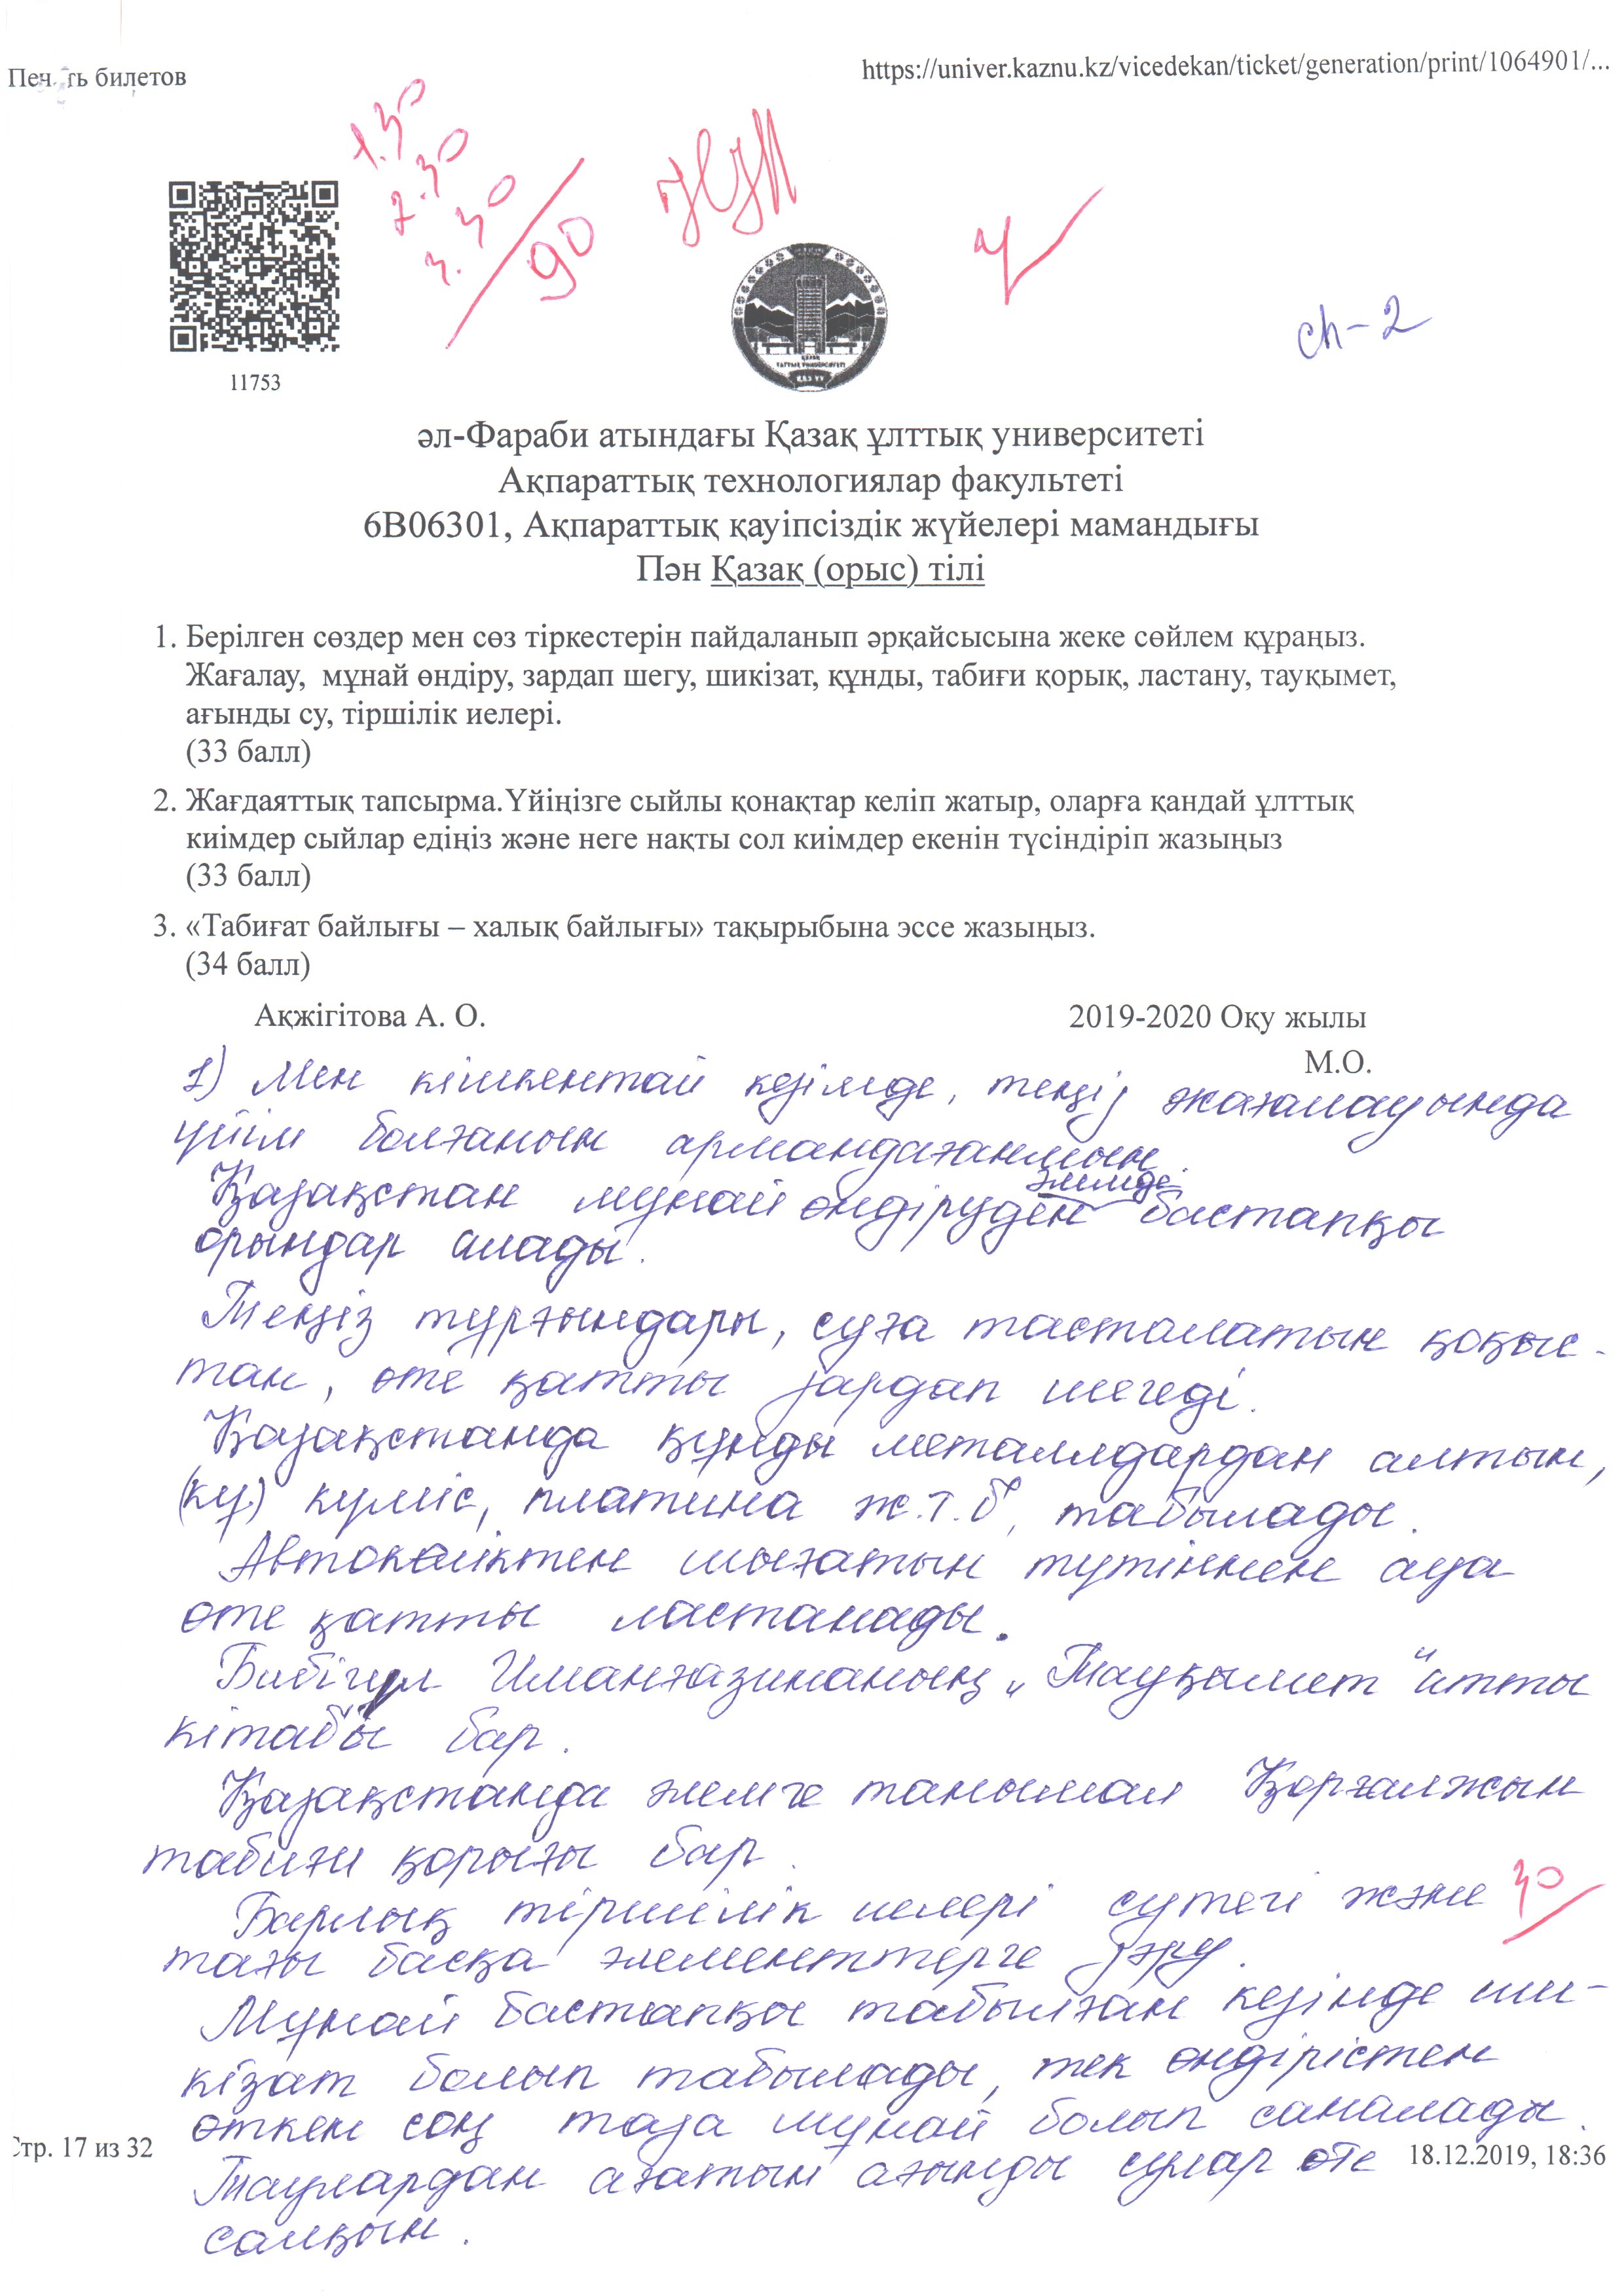 Печать билетов
https://univer.kaznu.kz/vicedekan/ticket/generation/print/1064901/...
1.30
2.30
3.30
90
ch-2
11753
ҚАЗАҚ
ҰЛТТЫҚ УНИВЕРСИТЕТІ
ҚАЗ ҰУ
әл-Фараби атындағы Қазақ ұлттық университеті
Ақпараттық технологиялар факультеті
6B06301, Ақпараттық қауіпсіздік жүйелері мамандығы
Пән Қазақ (орыс) тілі
1. Берілген сөздер мен сөз тіркестерін пайдаланып әрқайсысына жеке сөйлем құраңыз.
Жағалау, мұнай өндіру, зардап шегу, шикізат, құнды, табиғи қорық, ластану, тауқымет,
ағынды су, тіршілік иелері.
(33 балл)
2. Жағдаяттық тапсырма.Үйіңізге сыйлы қонақтар келіп жатыр, оларға қандай ұлттық
киімдер сыйлар едіңіз және неге нақты сол киімдер екенін түсіндіріп жазыңыз
(33 балл)
3. «Табиғат байлығы – халық байлығы» тақырыбына эссе жазыңыз.
(34 балл)
Ақжігітова А. О.
2019-2020 Оқу жылы
М.О.
1) Мен кішкентай кезімде, теңіз жағалауында
үйім болғанын армандағанмын.
Қазақстан мұнай өндіруден әлемде бастапқы
орындар алады.
Теңіз тұрғындары, суға тасталатын қоқыс-
тан, өте қатты зардап шегеді.
Қазақстанда құнды металлдардан алтын,
(кү) күміс, платина ж.т.б, табылады.
Автокөліктен шығатын түтіннен ауа
өте қатты ластанады.
Бибігүл Иманғазинаның „Тауқымет“ атты
кітабы бар.
Қазақстанда әлемге танымал Қорғалжын
табиғи қорығы бар.
Барлық тіршілік иелері сутегі және
тағы басқа элементтерге зәру.
30
Мұнай бастапқы табылған кезінде ши-
кізат болып табылады, тек өндірістен
өткен соң таза мұнай болып саналады.
Таулардан ағатын ағынды сулар өте
салқын.
Стр. 17 из 32
18.12.2019, 18:36